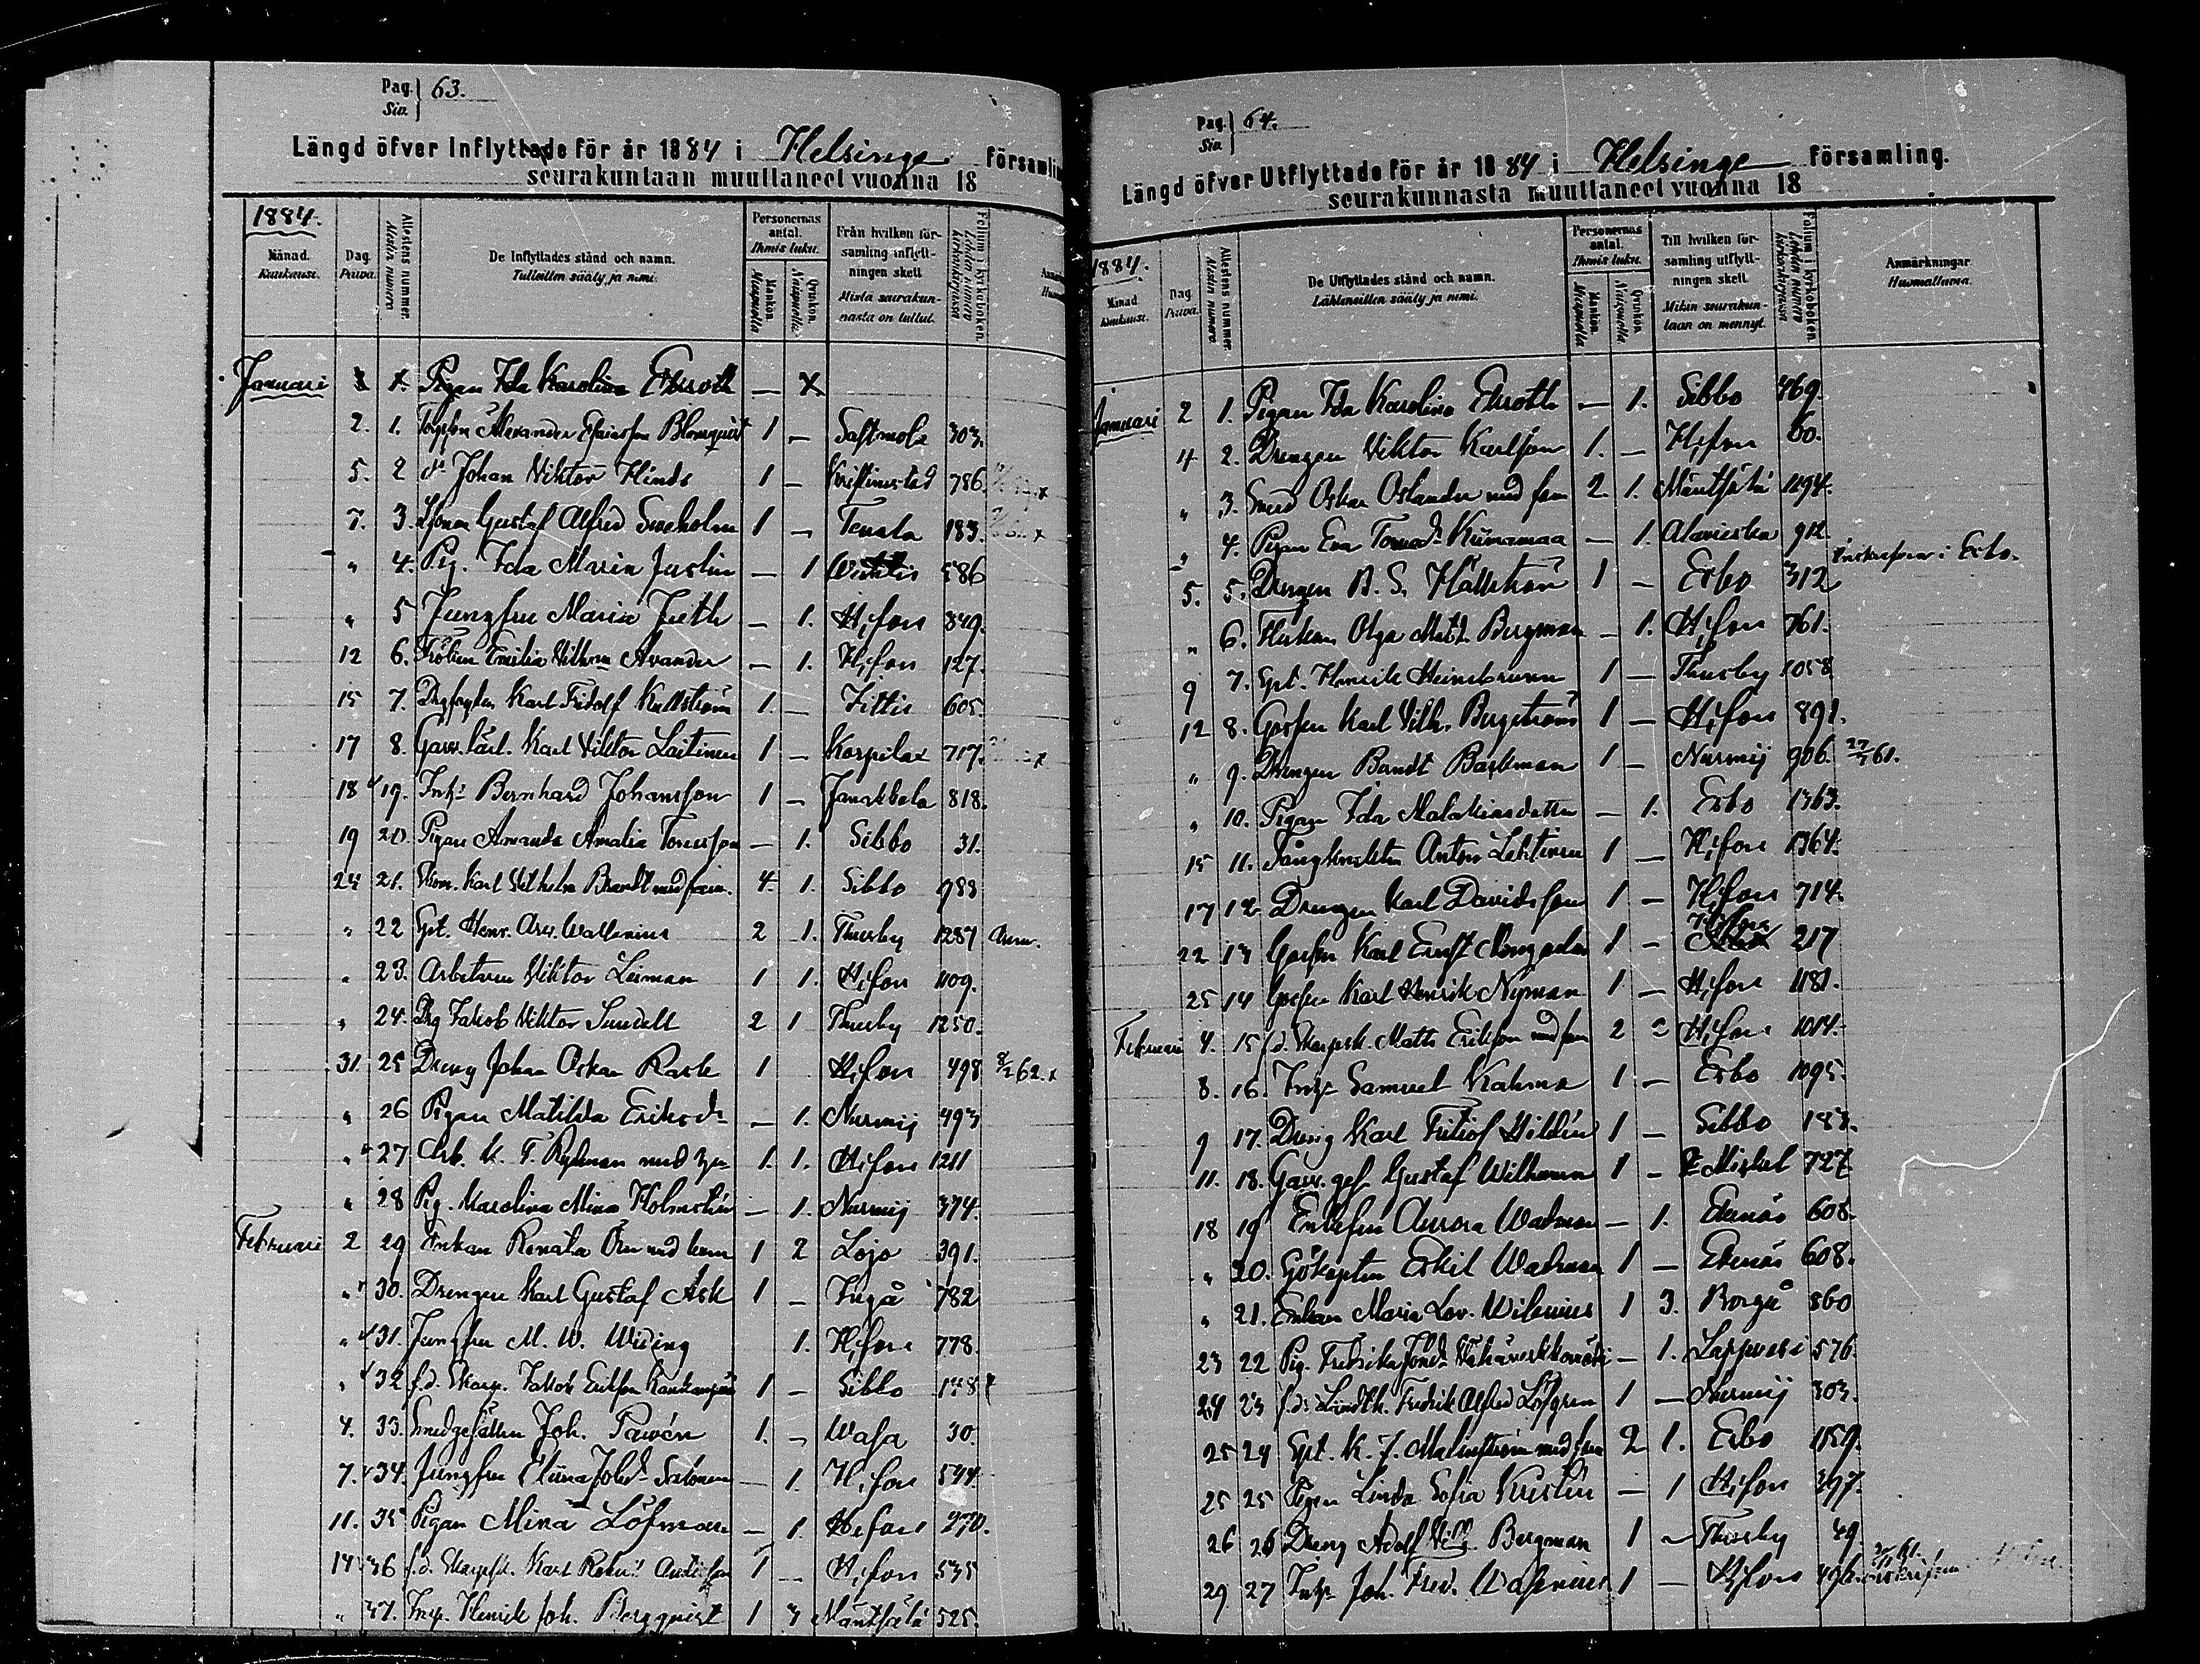 Pag. 63.
Siv.
Längd öfver Inflyttade för år 1884 i Helsinge församlin
seurakuntaan muuttaneet vuonna 18
1884.
Månad. Kuukausi.
Dag. Päivä.
Attestens nummer.
De Inflyttades stånd och namn.
Tulleitten sääty ja nimi.
Personernas antal.
Ihmis luku.
Mankön. Miespuolia
Qvinkön. Naispuolia.
Från hvilken församling inflyttningen skett
Mistä seurakunnasta on tullut.
Folium i kyrkoboken.
Januari 1 Pigan Ida Karolina Elsroth — X
2. 1. Alexander Blomqvist 1 — Sastmola 303.
5. 2 d:o Johan Viktor Hinds 1 — Kristinestad 786.
7. 3. Gustaf Alfred Sweholm 1 — Tenala 183.
" 4. Pig. Ida Maria Justin — 1 Wichtis 586
" 5 Jungfru Maria Jreth — 1. H:fors 849.
12 6. Fröken Emilia Vilhma Avander — 1. H:fors 127.
15 7. Karl Fridolf Kullström 1. — Jittis 605.
17 8. Karl Viktor Laitinen 1 — Korpilax 717.
18 19. Inh: Bernhard Johansson 1 — Janakkala 818.
19 20. Pigan Amanda Amalia — 1. Sibbo 31.
24 21. Karl Vilhelm Brandt med fam. 4. 1. Sibbo 988
" 22 Spt. Henr. Arv. Wallenius 2 1. Thusby 1287
" 23. Arbetaren Viktor Leiman 1 1. H:fors 1109.
" 24. Drg Jakob Viktor Sundell 2 1 Thusby 1250.
31. 25 Dreng Johan Oskar Rask 1 H:fors 498 62. x
" 26 Pigan Matilda Eriksdr — 1. Nurmij 493
" 27 Arb. K. F. Rydman med 1. 1. H:fors 1211
" 28 Pig. Karolina Mina Holmstén — 1. Nurmij 374.
Februari 2 29 Enkan Renata Örn med barn 1 2 Lojo 391.
" 30. Drengen Karl Gustaf Ask 1 — Ingå 782
" 31. Jungfru M. W. Widing 1. H:fors 778.
" 32 f.d. Skarp. Jakob Erikson 1 — Sibbo 178
4. 33. Smedgesällen Joh. Pawén 1. — Wasa 30.
7. 34. Jungfru Elina Johdr Salonen — 1. H:fors 544.
11. 35 Pigan Mina Löfman — 1. H:fors 270.
14 36 f.d. Skarpsk. Karl 1 — H:fors 535
" 37. Inh. Henrik Joh. Bergqvist 1 3 Mäntsälä 525.
Pag. 64.
Siv.
Längd öfver Utflyttade för år 1884 i Helsinge församling.
seurakunnasta muuttaneet vuonna 18
1884.
Månad Kuukausi.
Dag Päivä.
Attestens nummer.
De Utflyttades stånd och namn.
Lähteneitten sääty ja nimi.
Personernas antal.
Ihmis luku.
Mankön. Miespuolia
Qvinkön. Naispuolia
Till hvilken församling utflyttningen skett.
Mihin seurakuntaan on mennyt.
Folium i kyrkoboken.
Anmärkningar
Huomattavaa.
Januari 2 1. Pigan Ida Karolina Elsroth — 1. Sibbo 469.
4 2. Drengen Viktor Karlsson 1. — H:fors 60.
" 3. Smed Oskar Oslander med fam 2. 1. Mäntsälä 1094.
" 4. Pigan Eva Tomasdr Kiimamaa — 1. Alavieska 912.
5. 5. Drengen A. S. Hällström 1 — Esbo 312 i Esbo.
" 6. Olga Mat. Bergman — 1. H:fors 761.
9 7. Spt. Henrik Heinibrunn 1 — Thusby 1058
12 8. Karl Vilh. Bergström 1 — H:fors 891.
" 9. Drengen Berndt Backman 1 — Nurmij 906. 61.
" 10. Pigan Ida Malakinsdotter — 1. Esbo 1363.
15 11. Anton Lehtinen 1 — H:fors 1364.
17 12 Drengen Karl Davidsson 1 — H:fors 714.
22 13 Karl Ernst 1 — H:fors 217
25 14 Karl Henrik Nyman 1 — H:fors 1181.
Februari 4. 15 f.d. Skarpsk. Matts Erikson med fam 2 2 H:fors 1014.
8. 16. Inh: Samuel Kahma 1 — Esbo 1095.
9 17. Dreng Karl Fritiof Hildén 1 — Sibbo 188.
11. 18. Gustaf Wilhmn 1 — St Michel 727
18 19 Aurora Wadman — 1. Ekenäs 608.
" 20. Eskil Wadman 1 — Ekenäs 608.
" 21. Enkan Maria Lov. Wilenius 1 3. Borgå 860
23 22 Pig. Fredrika — 1. Lappvesi 576.
24 23 f.d. Fredrik Alfred Löfgren 1 — Nurmij 803.
25 24 Spt. K. J. Malmström med fam 2 1. Esbo 1159.
25 25 Pigan Linda Sofia Kristin — 1 H:fors 397.
26 26 Dreng Adolf Vilh. Bergman 1 — Thusby 49.
29 27 Inh: Joh. Fred. Wasenius 1 — H:fors